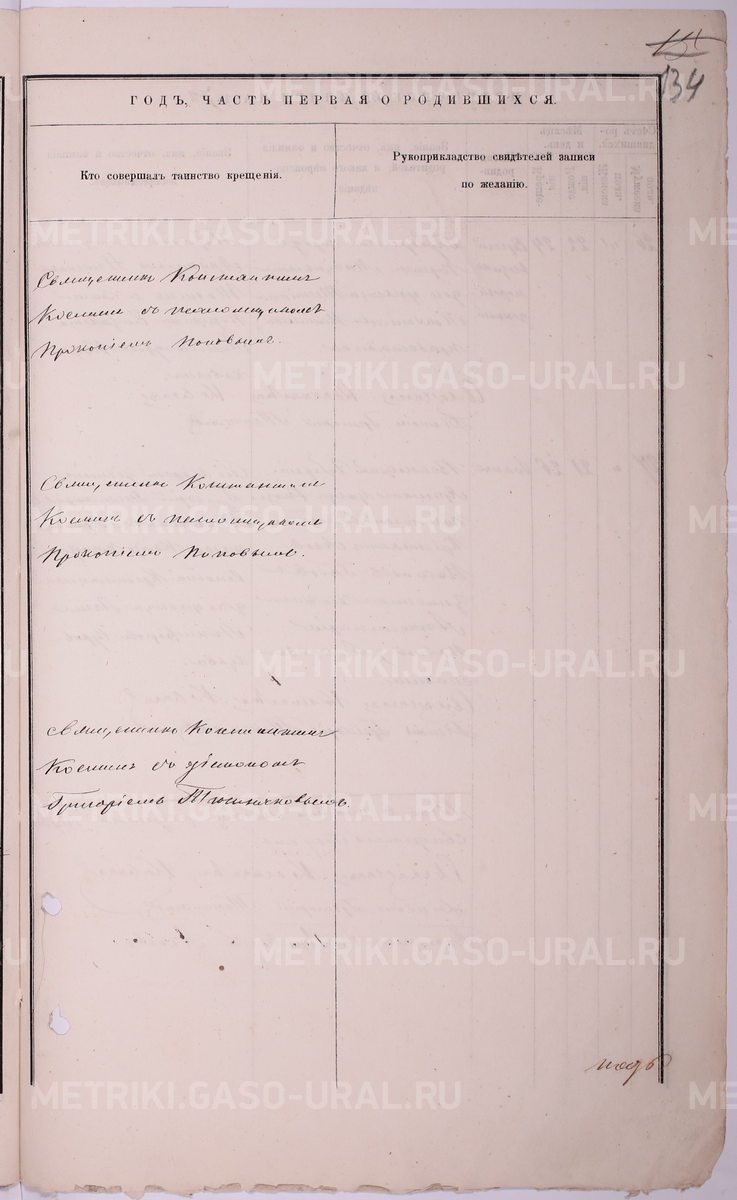 134
ГОДЪ, ЧАСТЬ ПЕРВАЯ О РОДИВШИХСЯ.
Кто совершалъ таинство крещенія.
Рукоприкладство свидѣтелей записи
по желанію.
Священникъ Константинъ
съ псаломщикомъ
Прокопіемъ Поповымъ.
Священникъ Константинъ
съ псаломщикомъ
Прокопіемъ Поповымъ.
Священникъ Константинъ
съ діакономъ
Григоріемъ
METRIKI.GASO-URAL.RU